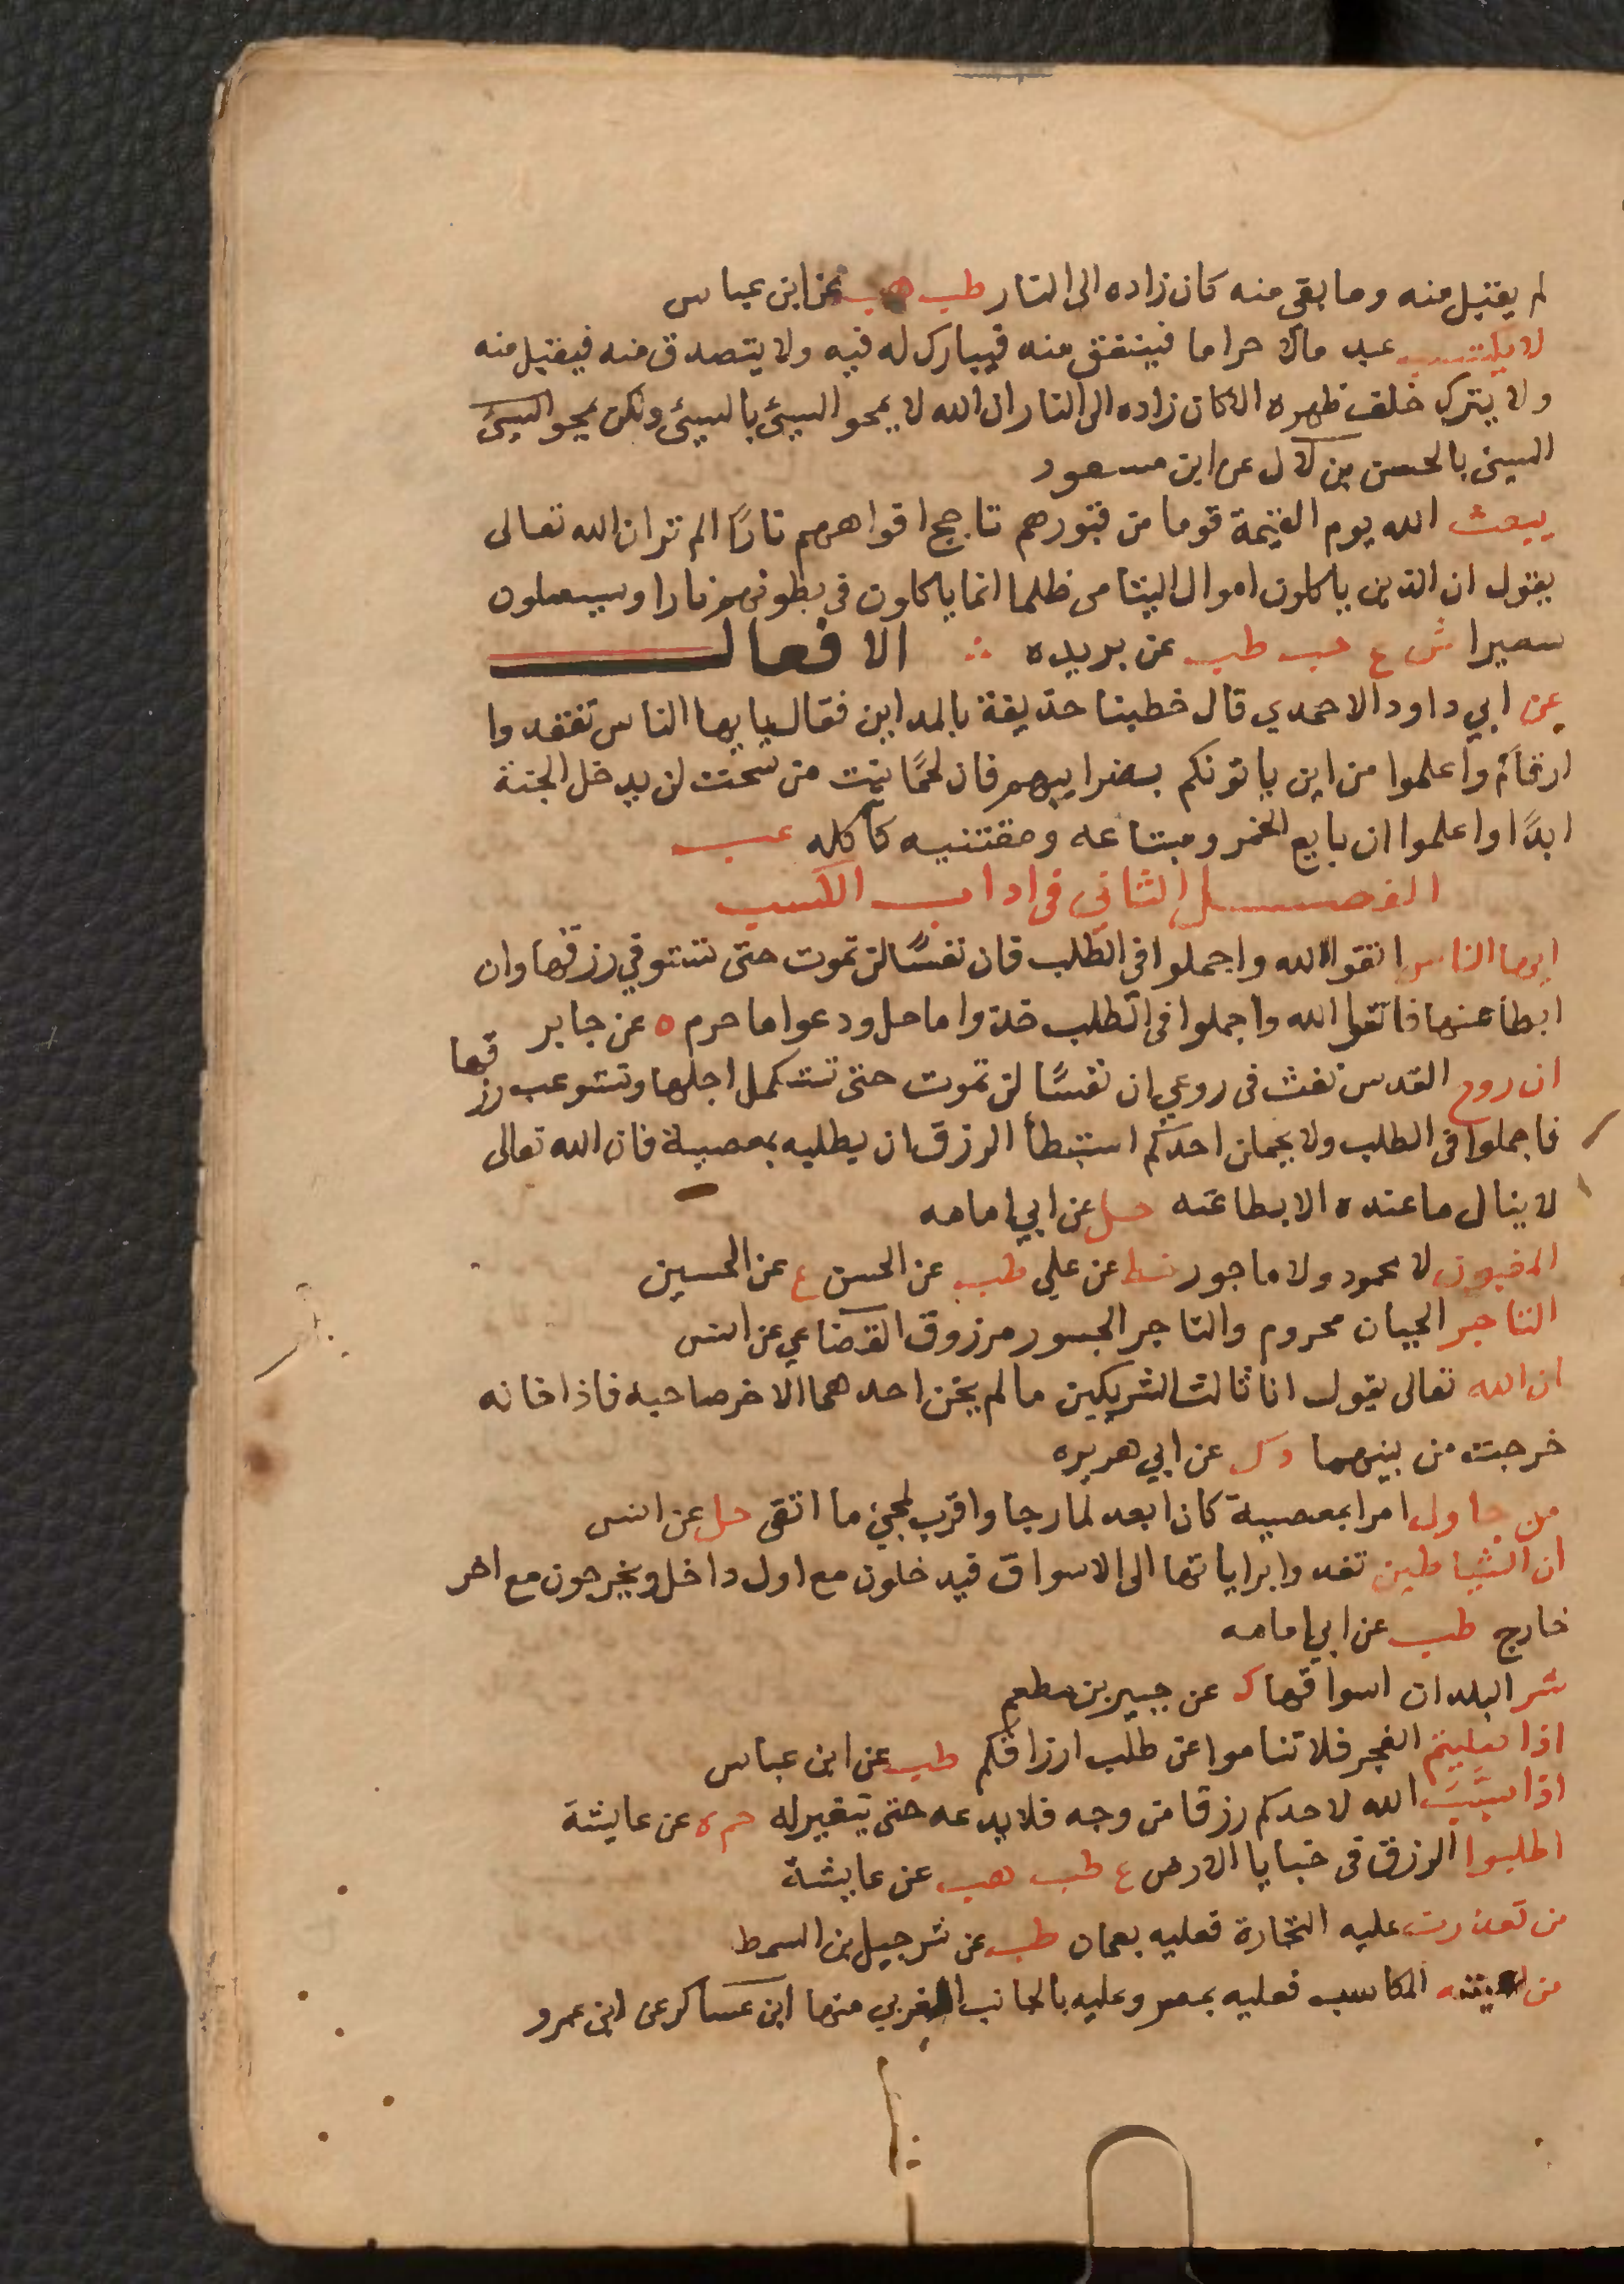 لم يقبل منه وما بقي منه كان زاده الى النار طب هب عن ابن عباس
لا يكتسب عبد مالا حراما فينفق منه فيبارك له فيه ولا يتصدق منه فيقبل منه
ولا يترك خلف ظهره الا كان زاده الى النار ان الله لا يمحو السيئ بالسيئ ولكن يمحو السيئ
السيئ بالحسن ابن لال عن ابن مسعود
يبعث الله يوم القيمة قوما من قبورهم تاجج افواههم نارًا الم تر ان الله تعالى
يقول ان الذين ياكلون اموال اليتامى ظلما انما ياكلون في بطونهم نارا وسيصلون
سعيرا ش ع حب طب عن بريده ∴ الافعال
عن ابي داود الاحمدي قال خطبنا حذيفة بالمداين فقال يايها الناس تفقدوا
ارقاكم واعلموا من اين ياتونكم بضرايبهم فان لحمًا نبت من سحت لن يدخل الجنة
ابدًا واعلموا ان بايع الخمر ومبتاعه ومقتنيه كآكله عب
الفصل الثاني في اداب الكسب
ايها الناس اتقوا الله واجملوا في الطلب فان نفسًا لن تموت حتى تستوفي رزقها وان
ابطا عنها فاتقوا الله واجملوا في الطلب خذوا ما حل ودعوا ما حرم ه عن جابر
ان روح القدس نفث في روعي ان نفسًا لن تموت حتى تستكمل اجلها وتستوعب رزقها
فاجملوا في الطلب ولا يحملن احدكم استبطأ الرزق ان يطلبه بمعصية فان الله تعالى
لا ينال ما عنده الا بطاعته حل عن ابي امامه
المغبون لا محمود ولا ماجور خط عن علي طب عن الحسن ع عن الحسين
التاجر الجبان محروم والتاجر الجسور مرزوق القضاعي عن انس
ان الله تعالى يقول انا ثالث الشريكين ما لم يخن احدهما الاخر صاحبه فاذا خانه
خرجت من بينهما د ك عن ابي هريره
من حاول امرا بمعصية كان ابعد لما رجا واقرب لمجئ ما اتقى حل عن انس
ان الشياطين تغدوا براياتها الى الاسواق فيدخلون مع اول داخل ويخرجون مع اخر
خارج طب عن ابي امامه
شر البلدان اسواقها ك عن جبير بن مطعم
اذا صليتم الفجر فلا تناموا عن طلب ارزاقكم طب عن ابن عباس
اذا سبّب الله لاحدكم رزقا من وجه فلا يدعه حتى يتغير له حم ه عن عايشة
اطلبوا الرزق في خبايا الارض ع طب هب عن عايشة
من تعذرت عليه التجارة فعليه بعمان طب عن شرحبيل بن السمط
من اعيته المكاسب فعليه بمصر وعليه بالجانب الغربي منها ابن عساكر عن ابن عمرو